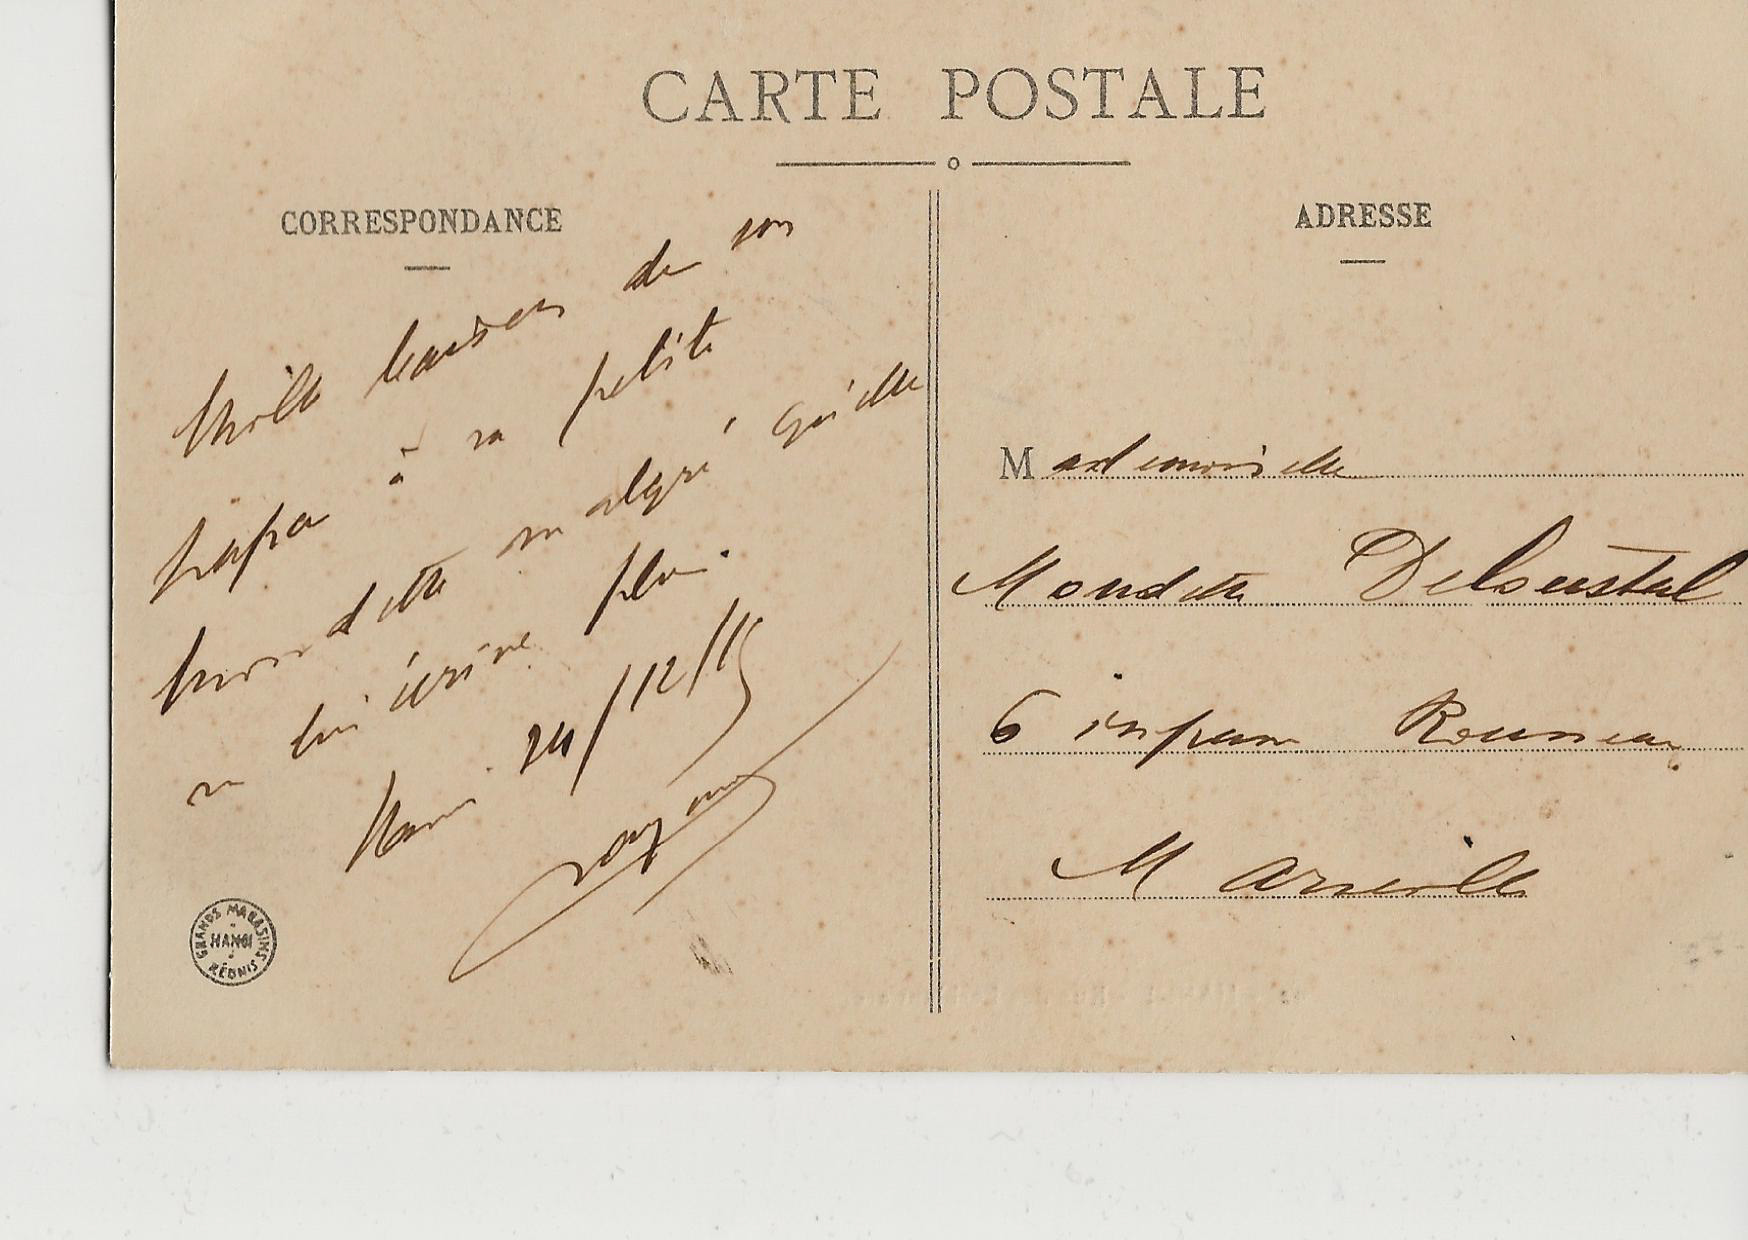 CARTE POSTALE
CORRESPONDANCE
Mille baisers de son
papa à sa petite
moudette malgré qu'elle
ne lui écrive plus.
Hanoi. 24/12/15
GRANDS MAGASINS
HANOI
RÉUNIS
ADRESSE
Mademoiselle
Moudette Delseustal
6 impasse
Marseille